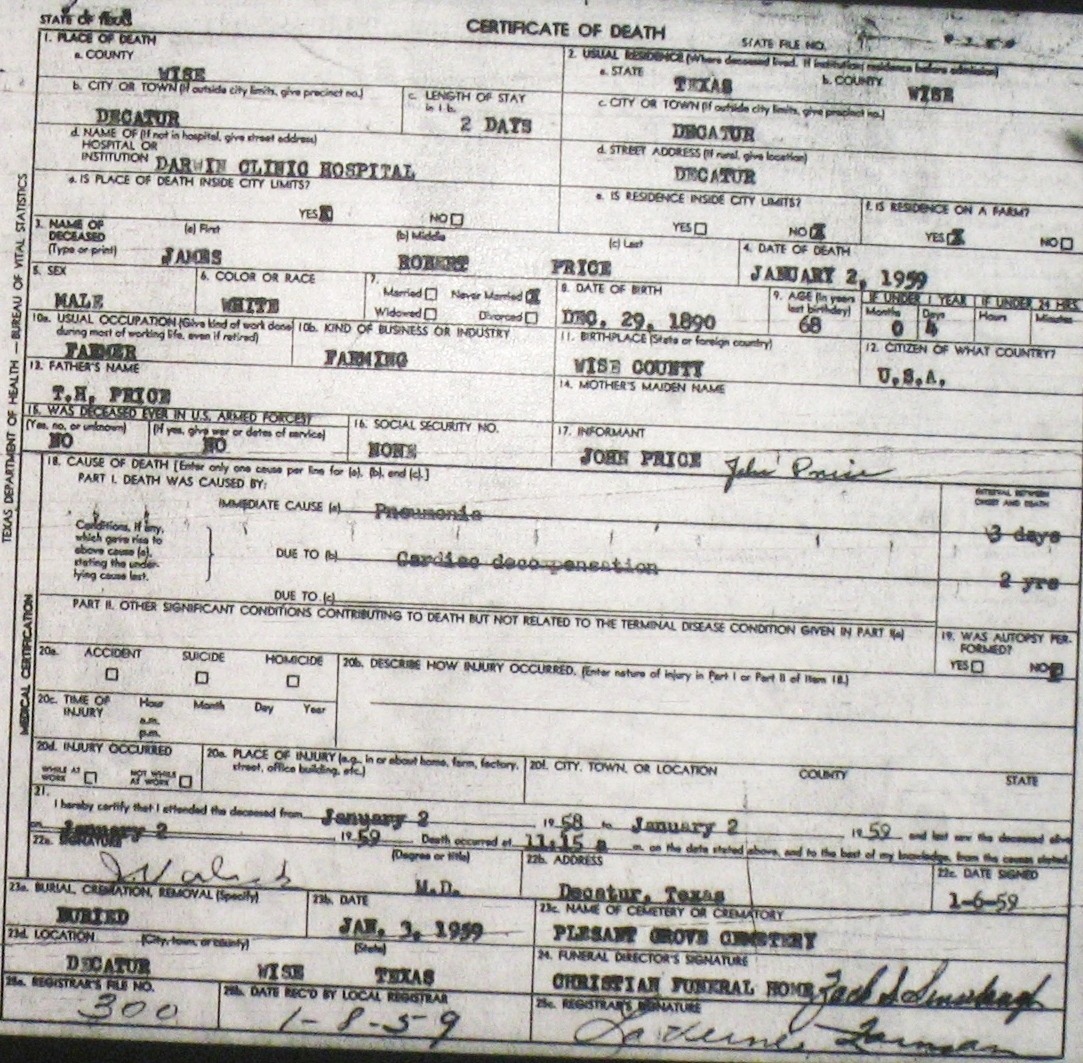 STATE OF TEXAS
CERTIFICATE OF DEATH
STATE FILE NO.
1. PLACE OF DEATH
a. COUNTY
WISE
2. USUAL RESIDENCE (Where deceased lived. If institution: residence before admission)
a. STATE
TEXAS
b. COUNTY
WISE
b. CITY OR TOWN (If outside city limits, give precinct no.)
DECATUR
c. LENGTH OF STAY in 1 b.
2 DAYS
c. CITY OR TOWN (If outside city limits, give precinct no.)
DECATUR
d. NAME OF (If not in hospital, give street address)
HOSPITAL OR
INSTITUTION DARWIN CLINIC HOSPITAL
d. STREET ADDRESS (If rural, give location)
DECATUR
e. IS PLACE OF DEATH INSIDE CITY LIMITS?
YES X NO
e. IS RESIDENCE INSIDE CITY LIMITS?
YES NO X
f. IS RESIDENCE ON A FARM?
YES X NO
3. NAME OF DECEASED (Type or print)
(a) First
JAMES
(b) Middle
ROBERT
(c) Last
PRICE
4. DATE OF DEATH
JANUARY 2, 1959
5. SEX
MALE
6. COLOR OR RACE
WHITE
7.
Married Never Married X
Widowed Divorced
8. DATE OF BIRTH
DEC. 29, 1890
9. AGE (In years last birthday)
68
IF UNDER 1 YEAR
Months Days
0 4
IF UNDER 24 HRS.
Hours Minutes
10a. USUAL OCCUPATION (Give kind of work done during most of working life, even if retired)
FARMER
10b. KIND OF BUSINESS OR INDUSTRY
FARMING
11. BIRTHPLACE (State or foreign country)
WISE COUNTY
12. CITIZEN OF WHAT COUNTRY?
U.S.A.
13. FATHER'S NAME
T.H. PRICE
14. MOTHER'S MAIDEN NAME
15. WAS DECEASED EVER IN U.S. ARMED FORCES?
(Yes, no, or unknown)
NO
(If yes, give war or dates of service)
NO
16. SOCIAL SECURITY NO.
NONE
17. INFORMANT
JOHN PRICE John Price
18. CAUSE OF DEATH [Enter only one cause per line for (a), (b), and (c).]
PART I. DEATH WAS CAUSED BY:
INTERVAL BETWEEN ONSET AND DEATH
IMMEDIATE CAUSE (a) Pneumonia
3 days
Conditions, if any, which gave rise to above cause (a), stating the underlying cause last.
DUE TO (b) Cardiac deco pensation
2 yrs
DUE TO (c)
PART II. OTHER SIGNIFICANT CONDITIONS CONTRIBUTING TO DEATH BUT NOT RELATED TO THE TERMINAL DISEASE CONDITION GIVEN IN PART I(a)
19. WAS AUTOPSY PERFORMED?
YES NO
20a. ACCIDENT SUICIDE HOMICIDE
20b. DESCRIBE HOW INJURY OCCURRED. (Enter nature of injury in Part I or Part II of Item 18.)
20c. TIME OF INJURY
Hour Month Day Year
a.m.
p.m.
20d. INJURY OCCURRED
WHILE AT WORK NOT WHILE AT WORK
20e. PLACE OF INJURY (e.g., in or about home, farm, factory, street, office building, etc.)
20f. CITY, TOWN, OR LOCATION COUNTY STATE
21.
I hereby certify that I attended the deceased from January 2 1958 to January 2 1959 and last saw the deceased alive
on January 2 1959 Death occurred at 11:15 a m. on the date stated above, and to the best of my knowledge, from the causes stated.
22a. SIGNATURE
(Degree or title)
M.D.
22b. ADDRESS
Decatur, Texas
22c. DATE SIGNED
1-6-59
23a. BURIAL, CREMATION, REMOVAL (Specify)
BURIED
23b. DATE
JAN. 3, 1959
23c. NAME OF CEMETERY OR CREMATORY
PLESANT GROVE CEMETERY
23d. LOCATION (City, town, or county) (State)
DECATUR WISE TEXAS
24. FUNERAL DIRECTOR'S SIGNATURE
CHRISTIAN FUNERAL HOME
25a. REGISTRAR'S FILE NO.
300
25b. DATE REC'D BY LOCAL REGISTRAR
1-8-59
25c. REGISTRAR'S SIGNATURE
TEXAS DEPARTMENT OF HEALTH — BUREAU OF VITAL STATISTICS
MEDICAL CERTIFICATION